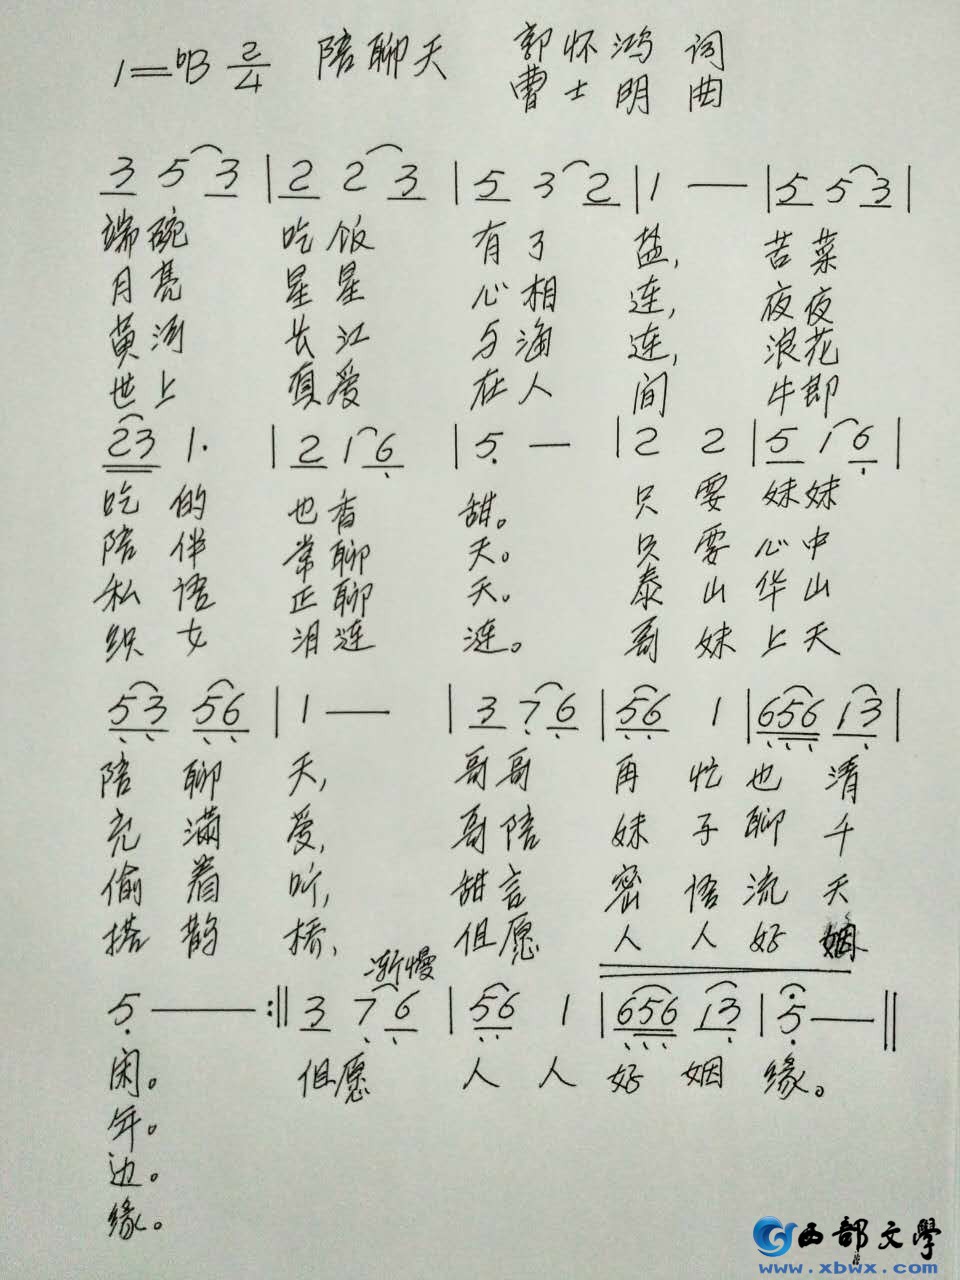 1=bB 2/4 陪聊天 郭怀鸿 词
曹士明 曲
3 5 3 | 2 2 3 | 5 3 2 | 1 — | 5 5 3 |
端碗 吃饭 有了 盐, 苦菜
月亮 星星 心相 连, 夜夜
黄河 长江 与海 连, 浪花
世上 真爱 在人 间 牛郎
23 1. | 2 1 6 | 5 — | 2 2 | 5 1 6 |
吃的 也香 甜。 只要 妹妹
陪伴 常聊 天。 只要 心中
私语 正聊 天。 泰山 华山
织女 泪涟 涟。 哥妹 上天
53 56 | 1 — | 3 7 6 | 56 1 | 656 13 |
陪聊 天, 哥哥 再忙 也清
充满 爱, 哥陪 妹子 聊千
偷着 听, 甜言 密语 流天
搭鹊 桥, 但愿 人人 好姻
渐慢
5 — :|| 3 7 6 | 56 1 | 656 13 | 5 — ||
闲。 但愿 人人 好姻 缘。
年。
边。
缘。
西部文學
www.xbwx.com